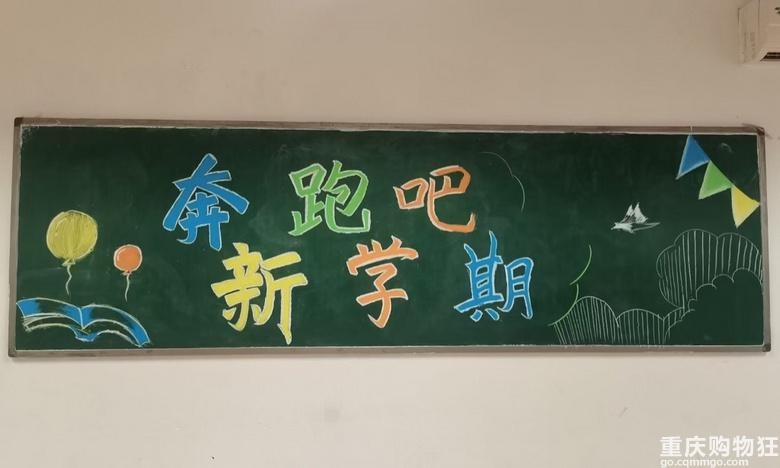 奔跑吧
新学期
重庆购物狂
go.cqmmgo.com